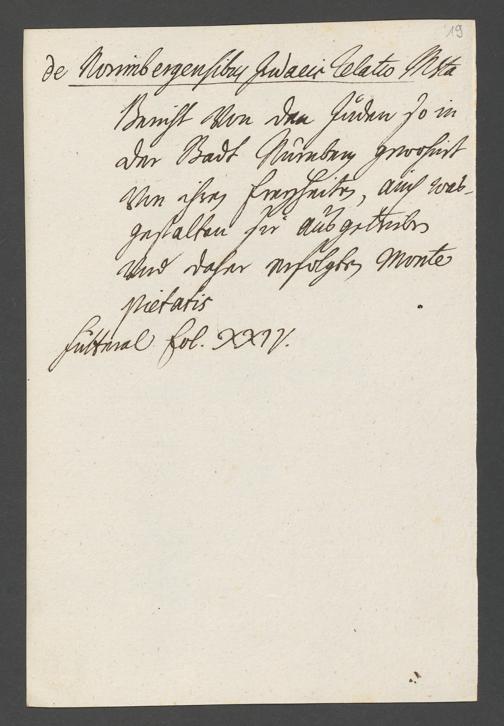 19
de Norimbergensibus Judaeis Relatio Msta
Bericht von den Juden so in
der Stadt Nürnberg gewohnt
von ihren Freyheiten, auch was-
gestalten sie ausgetrieben
und daher erfolgten Monte
pietatis
fol. XXIV.